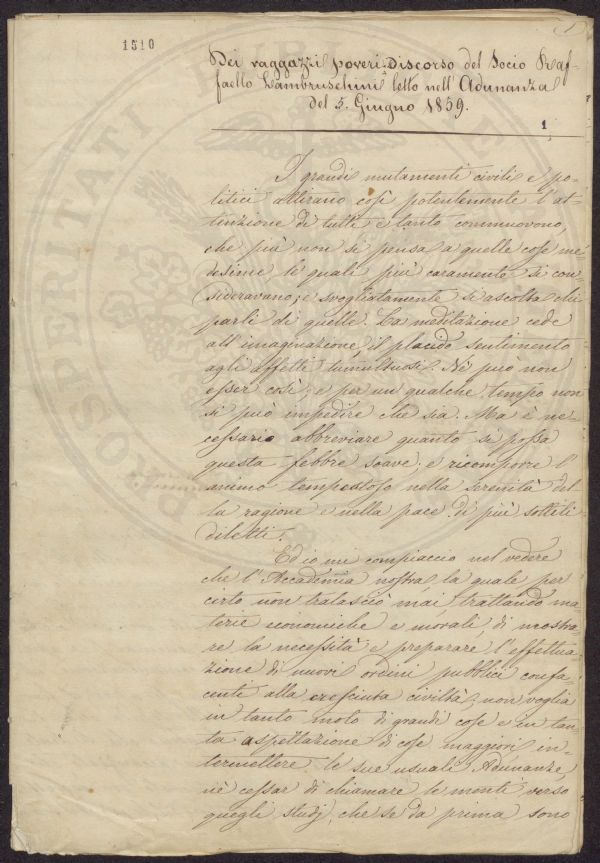 1
1510
Dei raggazzi poveri discorso del Socio Raf-
faello Lambruschini letto nell'Adunanza
del 5. Giugno 1859.
1
I grandi mutamenti civili e po-
litici attirano così potentemente l'at-
tenzione di tutti e tanto commuovono,
che più non si pensa a quelle cose me-
desime, le quali più caramente si con-
sideravano; e svogliatamente si ascolta chi
parli di quelle. La meditazione cede
all'imaginazione, il placido sentimento
agli affetti tumultuosi. Nè può non
esser così; e per un qualche tempo non
si può impedire che sia. Ma è ne-
cessario abbreviare quanto si possa
questa febbre soave; e ricomporre l'
animo tempestoso nella serenità del-
la ragione e nella pace di più sottili
diletti.
Ed io mi compiaccio nel vedere
che l'Accademia nostra, la quale per
certo non tralasciò mai, trattando ma-
terie economiche e morali, di mostra-
re la necessità e preparare l'effettua-
zione di nuovi ordini pubblici confa-
centi alla cresciuta civiltà, non voglia
in tanto moto di grandi cose e in tan-
ta aspettazione di cose maggiori in-
termettere le sue usuali Adunanze,
nè cessar di chiamare le menti verso
quegli studj, che se da prima sono
PROSPERITATI PUBLICAE